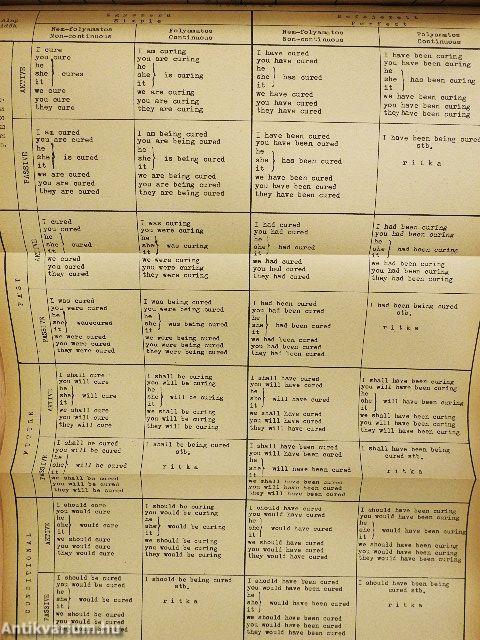 Alap
idők
Egyszerű
Simple
Befejezett
Perfect
Nem-folyamatos
Non-continuous
Folyamatos
Continuous
Nem-folyamatos
Non-continuous
Folyamatos
Continuous
AKTIVE
I cure
you cure
he
she cures
it
we cure
you cure
they cure
I am curing
you are curing
he
she is curing
it
we are curing
you are curing
they are curing
I have cured
you have cured
he
she has cured
it
we have cured
you have cured
they have cured
I have been curing
you have been curing
he
she has been curing
it
we have been curing
you have been curing
they have been curing
PASSIVE
I am cured
you are cured
he
she is cured
it
we are cured
you are cured
they are cured
I am being cured
you are being cured
he
she is being cured
it
we are being cured
you are being cured
they are being cured
I have been cured
you have been cured
he
she has been cured
it
we have been cured
you have been cured
they have been cured
I have been being cured
stb.
ritka
PAST
AKTIVE
I cured
you cured
he
she cured
it
we cured
you cured
they cured
I was curing
you were curing
he
she was curing
it
we were curing
you were curing
they were curing
I had cured
you had cured
he
she had cured
it
we had cured
you had cured
they had cured
I had been curing
you had been curing
he
she had been curing
it
we had been curing
you had been curing
they had been curing
PASSIVE
I was cured
you were cured
he
she wascured
it
we were cured
you were cured
they were cured
I was being cured
you were being cured
he
she was being cured
it
we were being cured
you were being cured
they were being cured
I had been cured
you had been cured
he
she had been cured
it
we had been cured
you had been cured
they had been cured
I had been being cured
stb.
ritka
FUTURE
AKTIVE
I shall cure
you will cure
he
she will cure
it
we shall cure
you will cure
they will cure
I shall be curing
you will be curing
he
she will be curing
it
we shall be curing
you will be curing
they will be curing
I shall have cured
you will have cured
he
she will have cured
it
we shall have cured
you will have cured
they will have cured
I shall have been curing
you will have been curing
he
she will have been curing
it
we shall have been curing
you will have been curing
they will have been curing
PASSIVE
I shall be cured
you will be cured
he
she will be cured
it
we shall be cured
you will be cured
they will be cured
I shall be being cured
stb.
ritka
I shall have been cured
you will have been cured
he
she will have been cured
it
we shall have been cured
you will have been cured
they will have been cured
I shall have been being
cured stb.
ritka
CONDITIONAL
AKTIVE
I should cure
you would cure
he
she would cure
it
we should cure
you would cure
they would cure
I should be curing
you would be curing
he
she would be curing
it
we should be curing
you would be curing
they would be curing
I should have cured
you would have cured
he
she would have cured
it
we should have cured
you would have cured
they would have cured
I should have been curing
you would have been curing
he
she would have been curing
it
we should have been curing
you would have been curing
they would have been curing
PASSIVE
I should be cured
you would be cured
he
she would be cured
it
we should be cured
you would be cured
I should be being cured
stb.
ritka
I should have been cured
you would have been cured
he
she would have been cured
it
we should have been cured
you would have been cured
they would have been cured
I should have been being
cured stb.
ritka
Antikvarium.hu